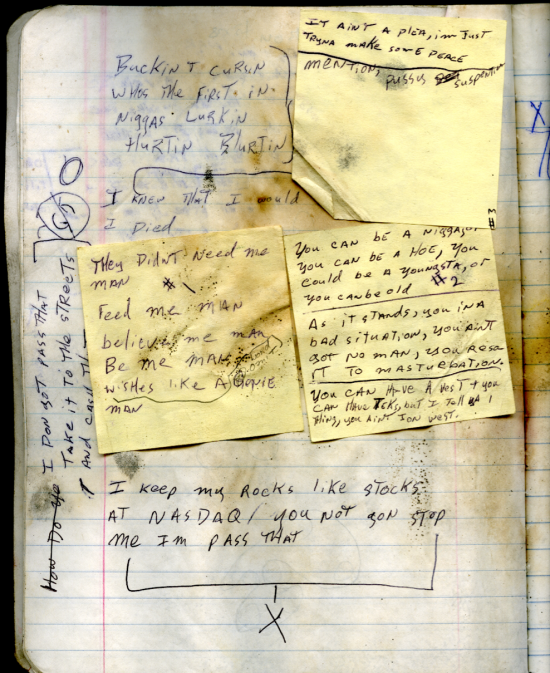 IT AINT A PLEA, im JUST
TRYNA MAKE SOME PEACE
MENTION, PUSSYS SUSPENTION
BUCKIN T CURSN
WHOS THE FIRST. IN.
NIGGAS LURKIN
HURTIN BLURTIN
I KNEW THAT I WOULD
I DIED
THEY DIDNT NEED ME
MAN #1
FEED ME MAN
believe me man
Be me MAN
WISHES LIKE A GENIE
MAN
YOU CAN BE A NIGGA, OR
YOU CAN BE A HOE, YOU
COULD BE A YOUNGSTA, OR
YOU CAN BE OLD #2
AS IT STANDS, YOU IN A
BAD SITUATION, YOU AINT
GOT NO MAN, YOU RESO
RT TO MASTURBATION.
YOU CAN HAVE A VEST & YOU
CAN HAVE TEKS, BUT I TELL YA 1
THING, YOU AINT
#3
I DON GOT PASS THAT
TAKE IT TO THE STREETS
AND
HOW DO
I KEEP MY ROCKS LIKE STOCKS
AT NASDAQ / YOU NOT GON STOP
ME IM PASS THAT
X